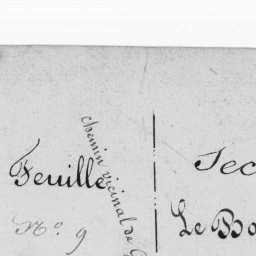 Feuille
chemin vicinal de
Nº. 9
Sec
Le Bo